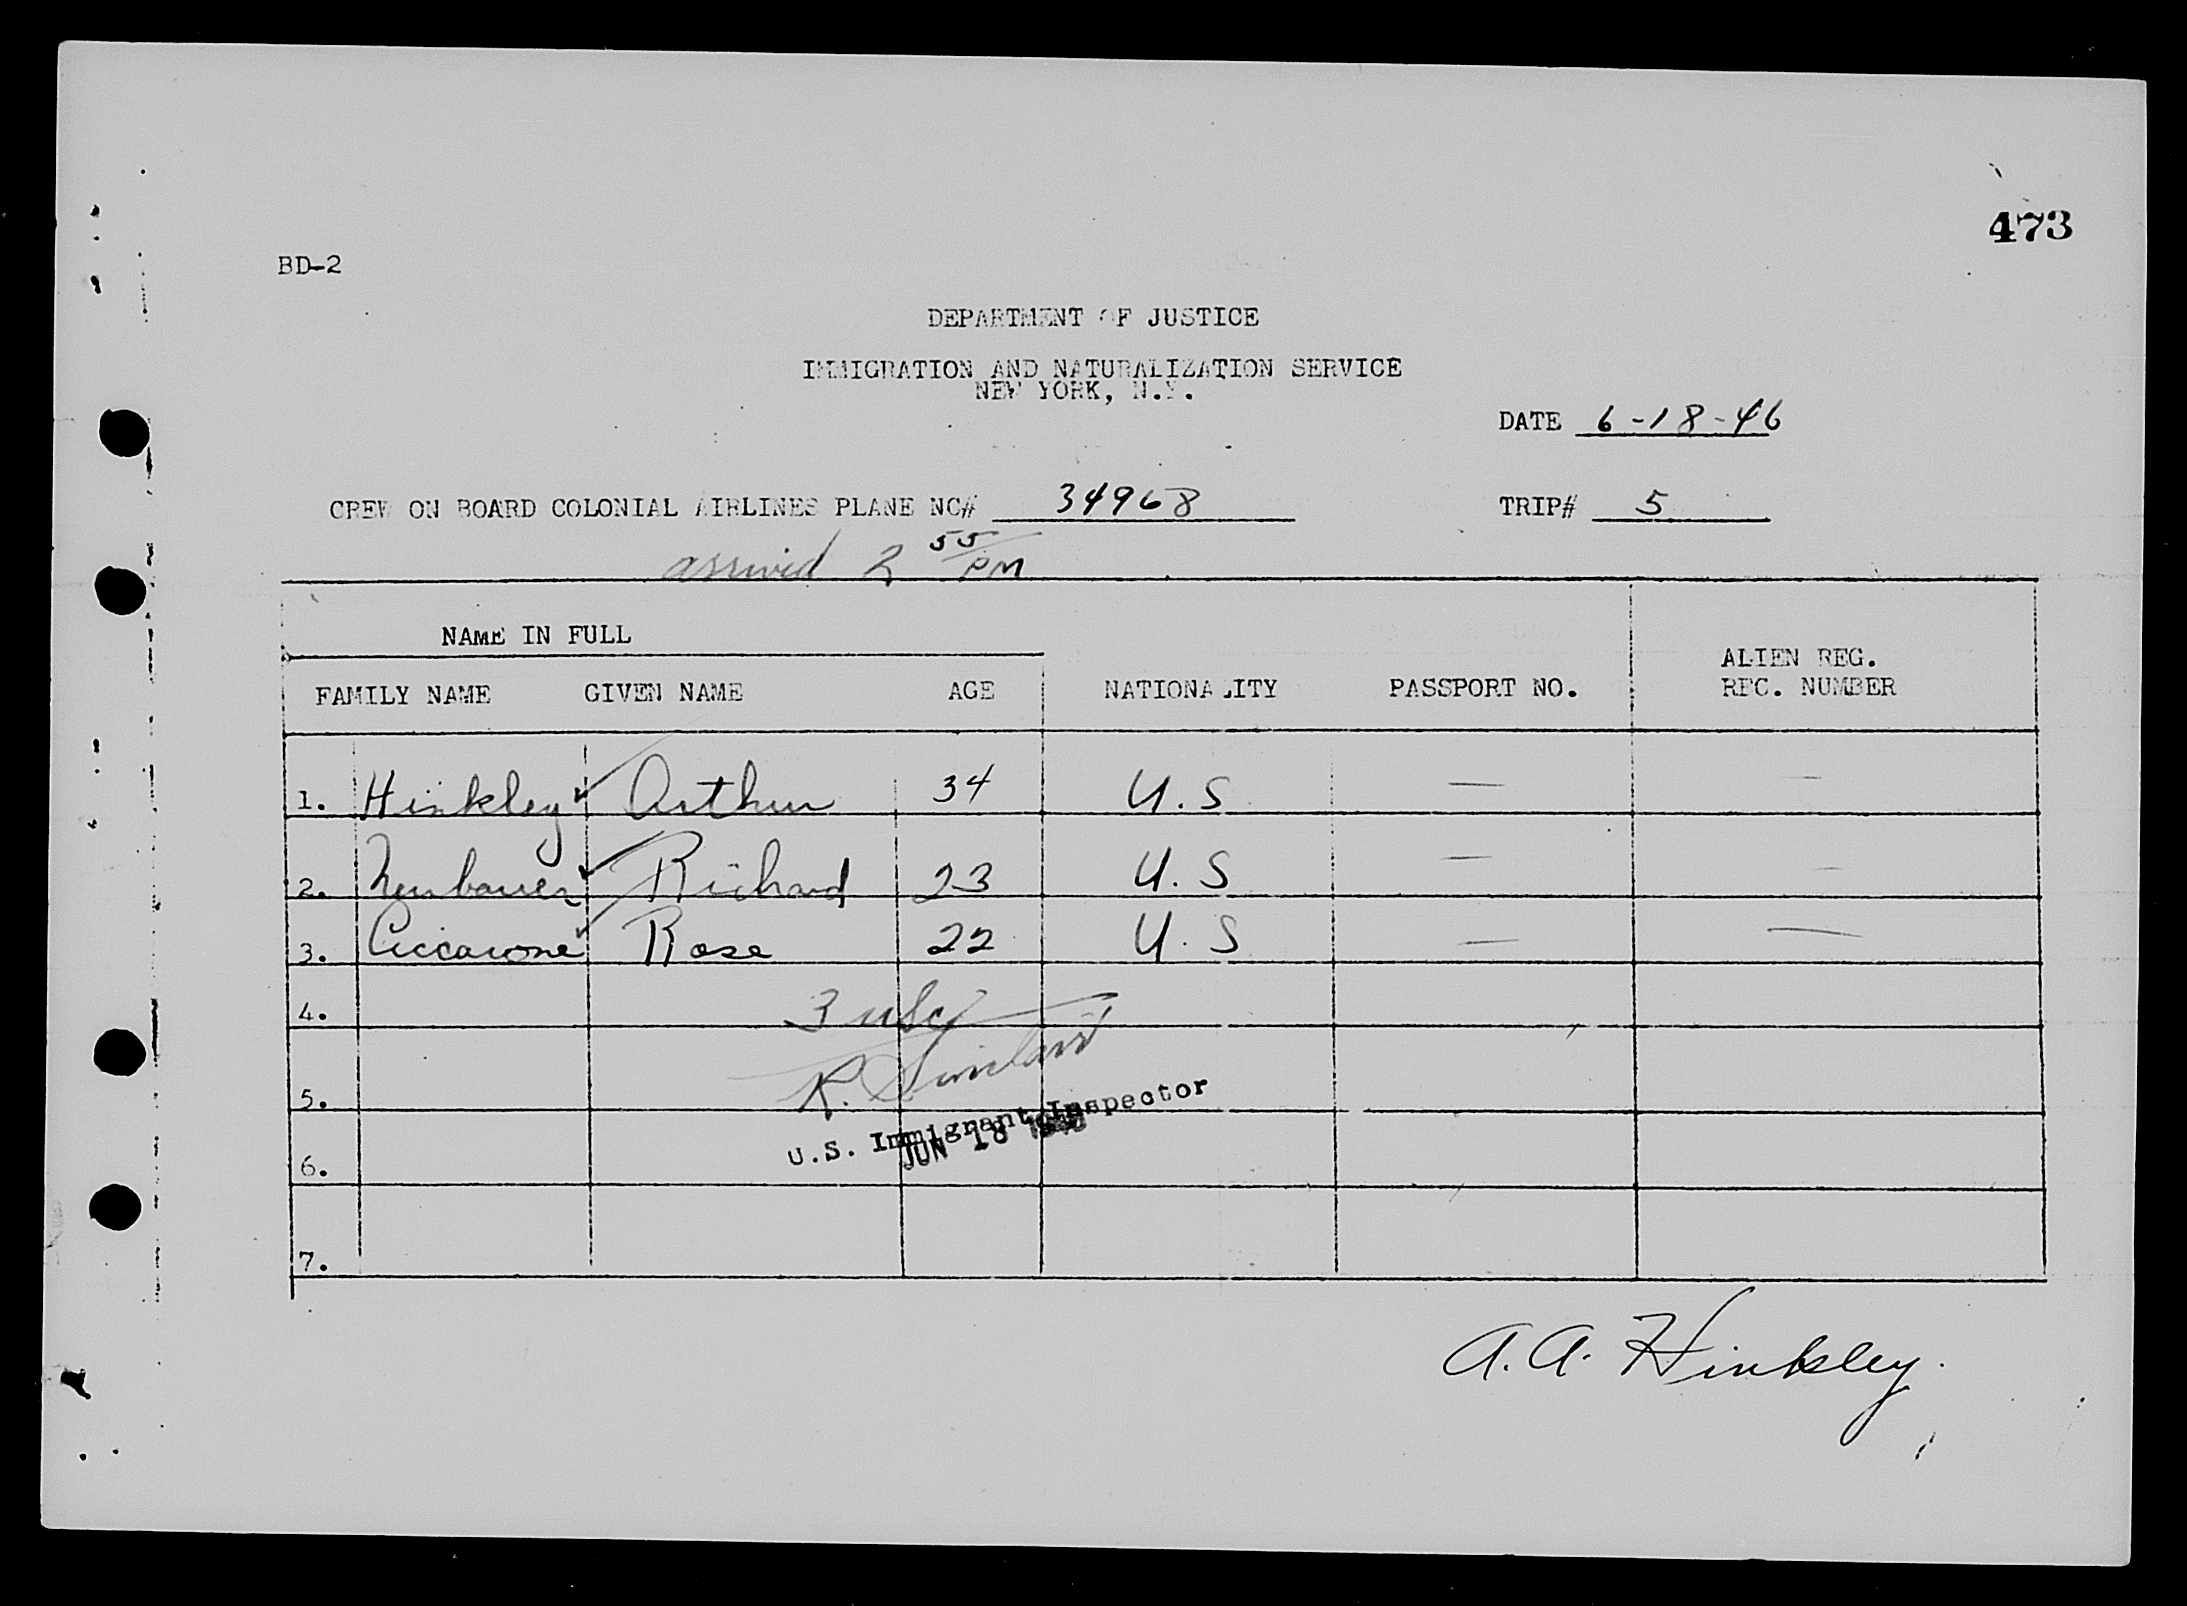 473
BD-2
DEPARTMENT OF JUSTICE
IMMIGRATION AND NATURALIZATION SERVICE
NEW YORK, N.Y.
DATE 6-18-46
CREW ON BOARD COLONIAL AIRLINES PLANE NC# 34968 TRIP# 5
arrived 2 55 PM
NAME IN FULL
FAMILY NAME GIVEN NAME AGE NATIONALITY PASSPORT NO. ALIEN REG. REC. NUMBER
1. Hinkley ✓ Arthur 34 U.S — —
2. Neubauer ✓ Richard 23 U.S — —
3. Ciccarone ✓ Rose 22 U.S — —
4.
3 USC
R. Sinclair
5.
U.S. Immigrant Inspector
JUN 18 1946
6.
7.
A. A. Hinkley.